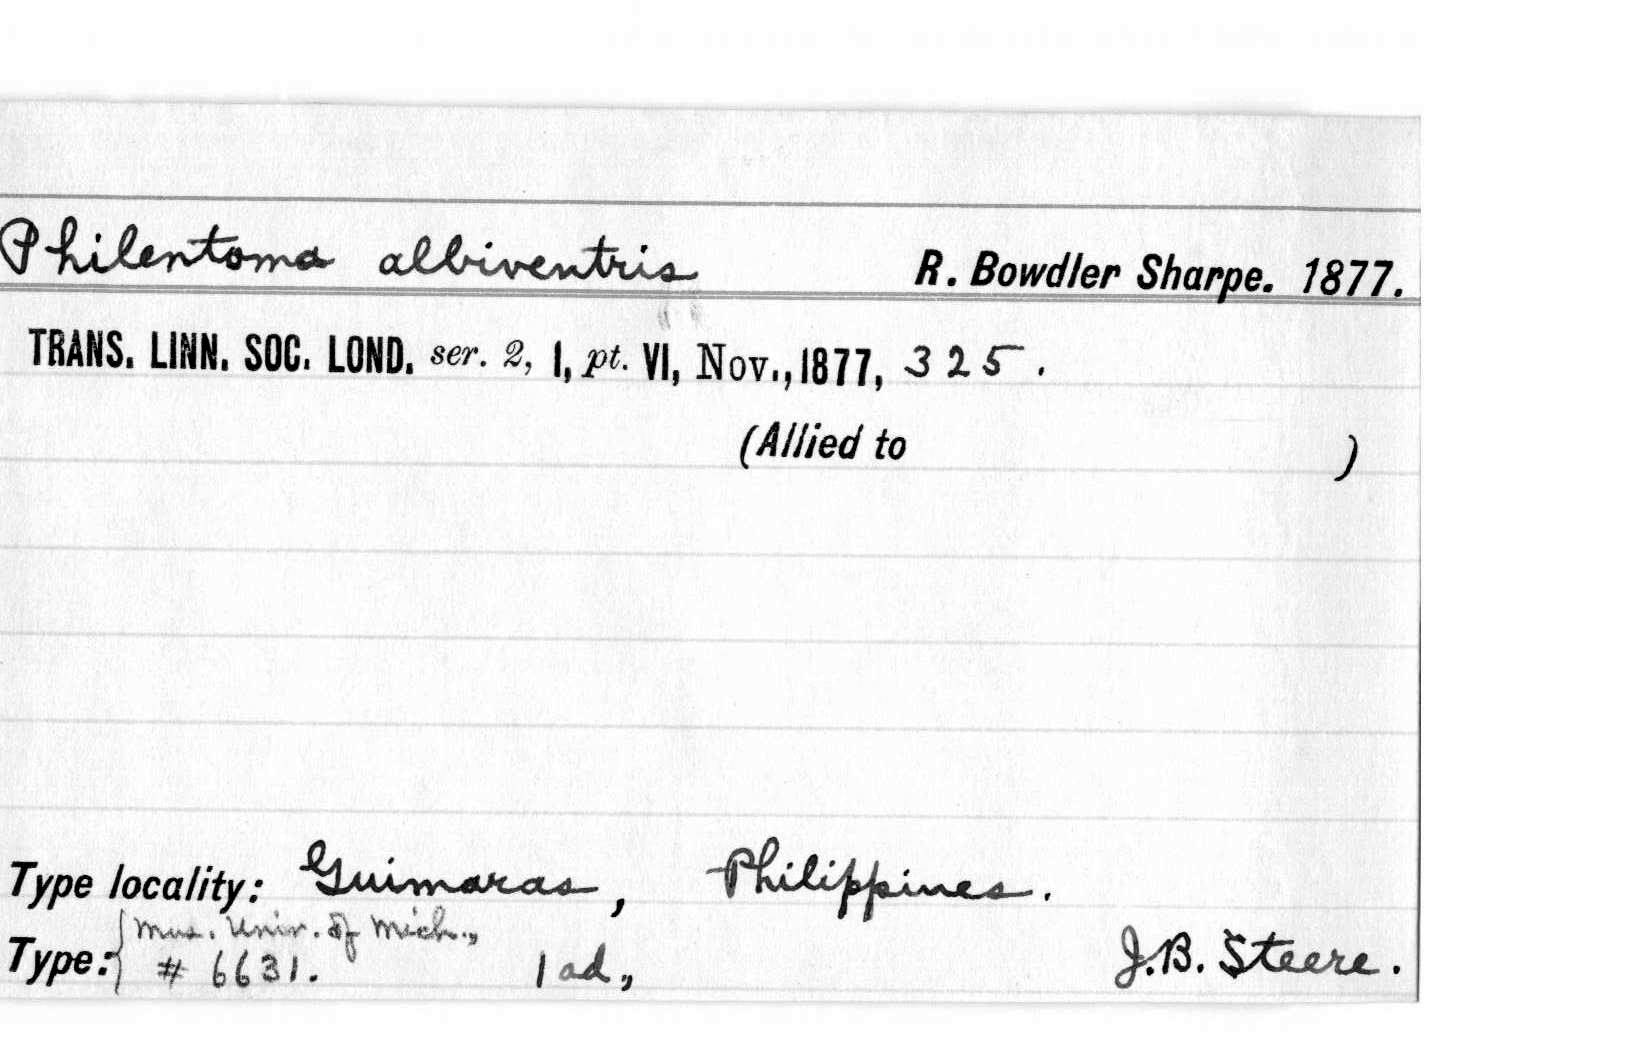 Philentoma albiventris R. Bowdler Sharpe. 1877.
TRANS. LINN. SOC. LOND. ser. 2, I, pt. VI, Nov., 1877, 325.
(Allied to )
Type locality: Guimaras, Philippines.
Mus. Univ. of Mich.,
Type: # 6631. 1 ad., J.B. Steere.